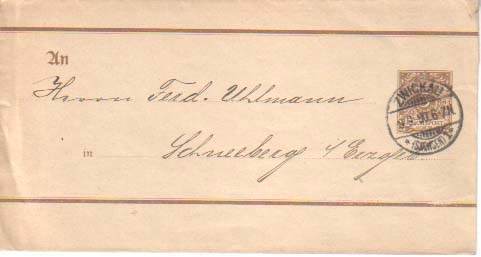 An
Herrn Ferd. Uhlmann
in Schneeberg i/Erzgeb.
ZWICKAU
(SACHSEN)